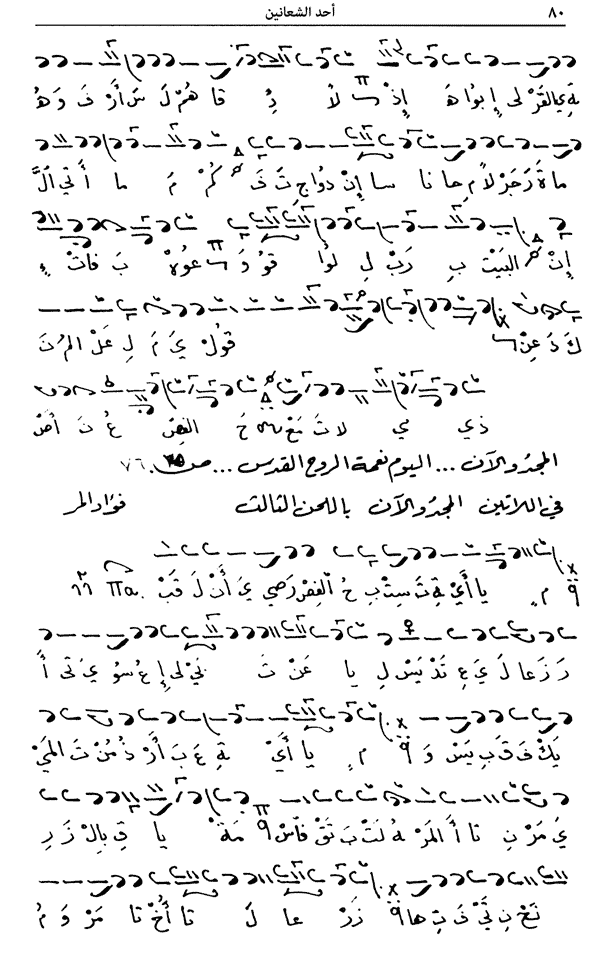 ٨٠ أحد الشعانين
ةِ يالقَرْ لى إِ بوا هَ إِذْ لاً دِ قا هُمْ لَ سَ أَرْ فَ وَ هُ
ما ةَ رَجَزْ لاً مِ حا نا سا إِنْ دواجِ تَ فَ كُمْ مَ ما أَتي الَّ
إِنْ البَيْتْ بِ رَبْ لِ لوا قو وَ عوهُ بَ فاتْ
كَ دَ عِنْ قولُ يَ مَ لِ عَلْ المُ نَ
ذي مي لا تَ مَعْ حَ الفِصْ عُ نَ أَصْ
المجدُ والآن ... اليوم نعمة الروح القدس ... ص ٧٦.
في اللاتين المجدُ والآن باللحن الثالث فؤاد المر
مٍ يا أَيْ ةِ تَ سِتْ بِ حُ الفِصْ رَضي يَ أَنْ لَ قَبْ
رَ زَ عا لَ يَ عِ تَدْ يَسْ لِ يا عَنْ تَ ني لى إِ عُ سو يَ تى أَ
يَكْ فَ قَ بِ يَسْ وَ مٍ يا أَيْ ةِ عَ بَ أَرْ ذُ مُنْ تَ المَيْ
يَ مَرْ نِ تا أَ المَرْ هُ لَتْ بَ تَقْ فاسْ مَهْ يا قِ بالِ زَ رِ
نَحْ نِ تَيْ فَ بَ تِ ها ذَرْ عا لَ تا أُخْ تا مَرْ وَ مُ